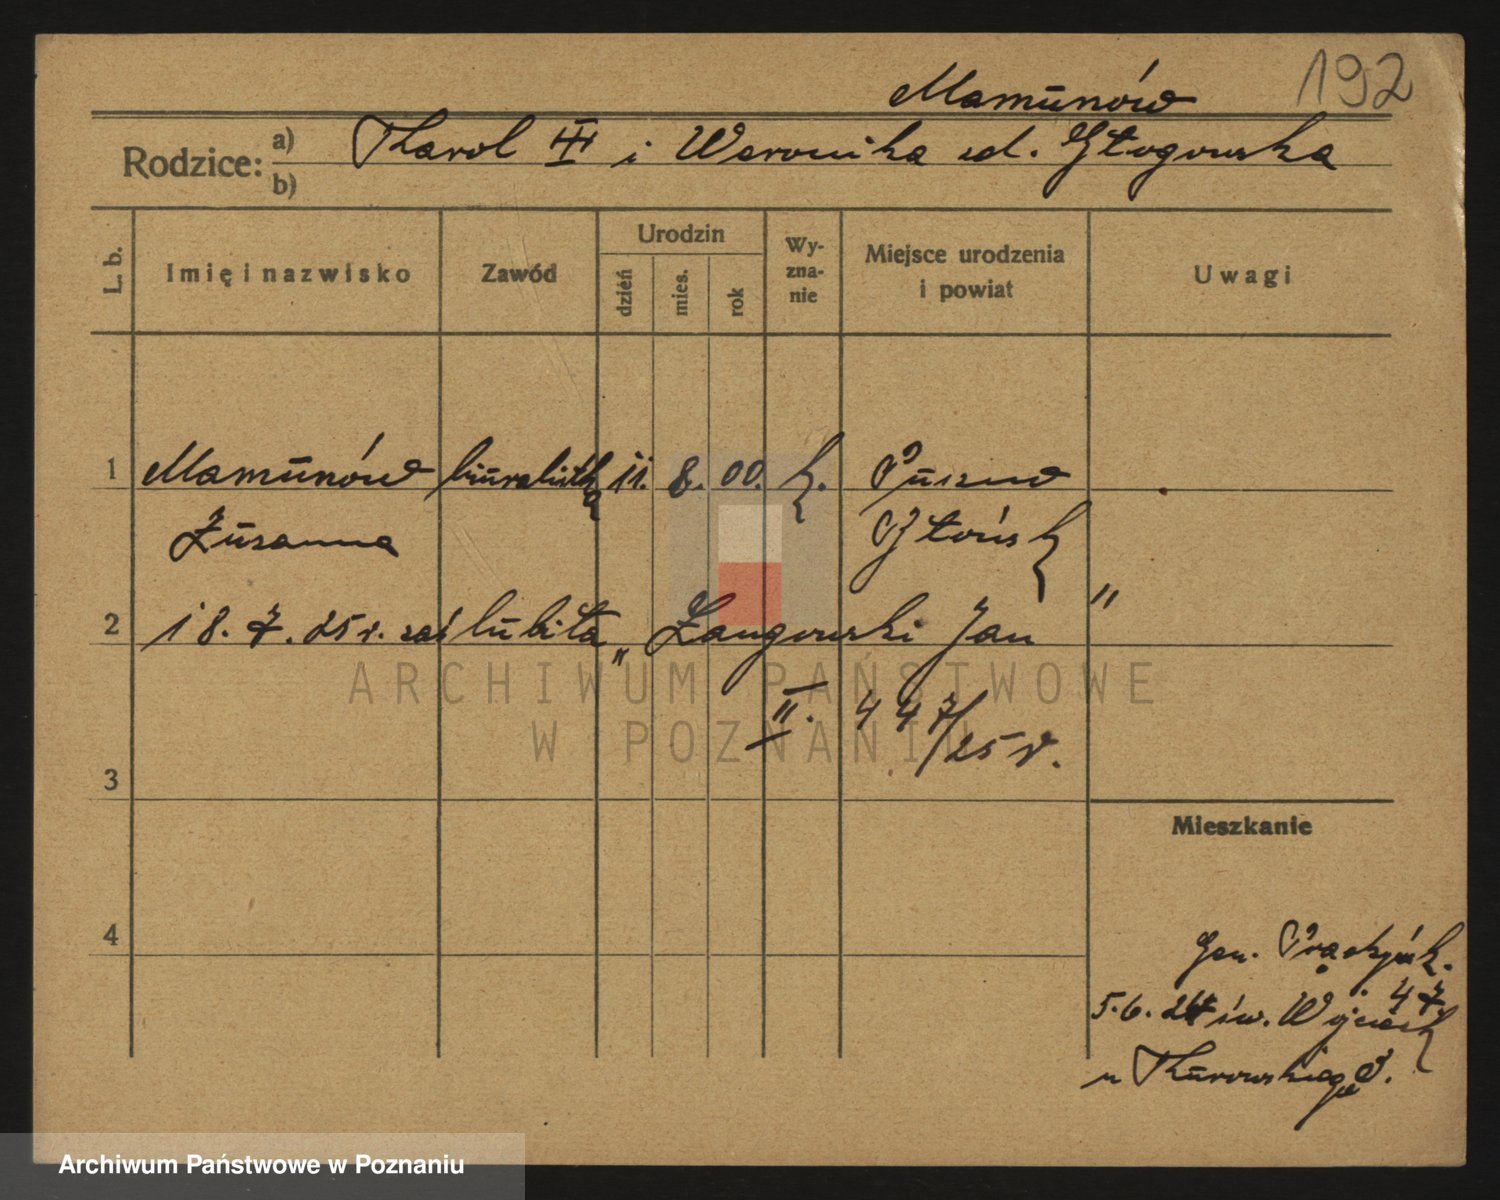 192
Mamunów
Rodzice: a) Karol III i Weronika zd. Głogowska
b)
L. b.
Imię i nazwisko
Zawód
Urodzin
dzień
mies.
rok
Wy-
zna-
nie
Miejsce urodzenia
i powiat
Uwagi
1 Mamunów biuralistk 11. 8. 00. k.
Zuzanna
2 18. 7. 25 r. zaślubiła „Langowski Jan"
II. 447/25 r.
3
Mieszkanie
4
Gen. 47.
5.6. 24 św. Wojciech
u Kurowskiego
ARCHIWUM PAŃSTWOWE
W POZNANIU
Archiwum Państwowe w Poznaniu